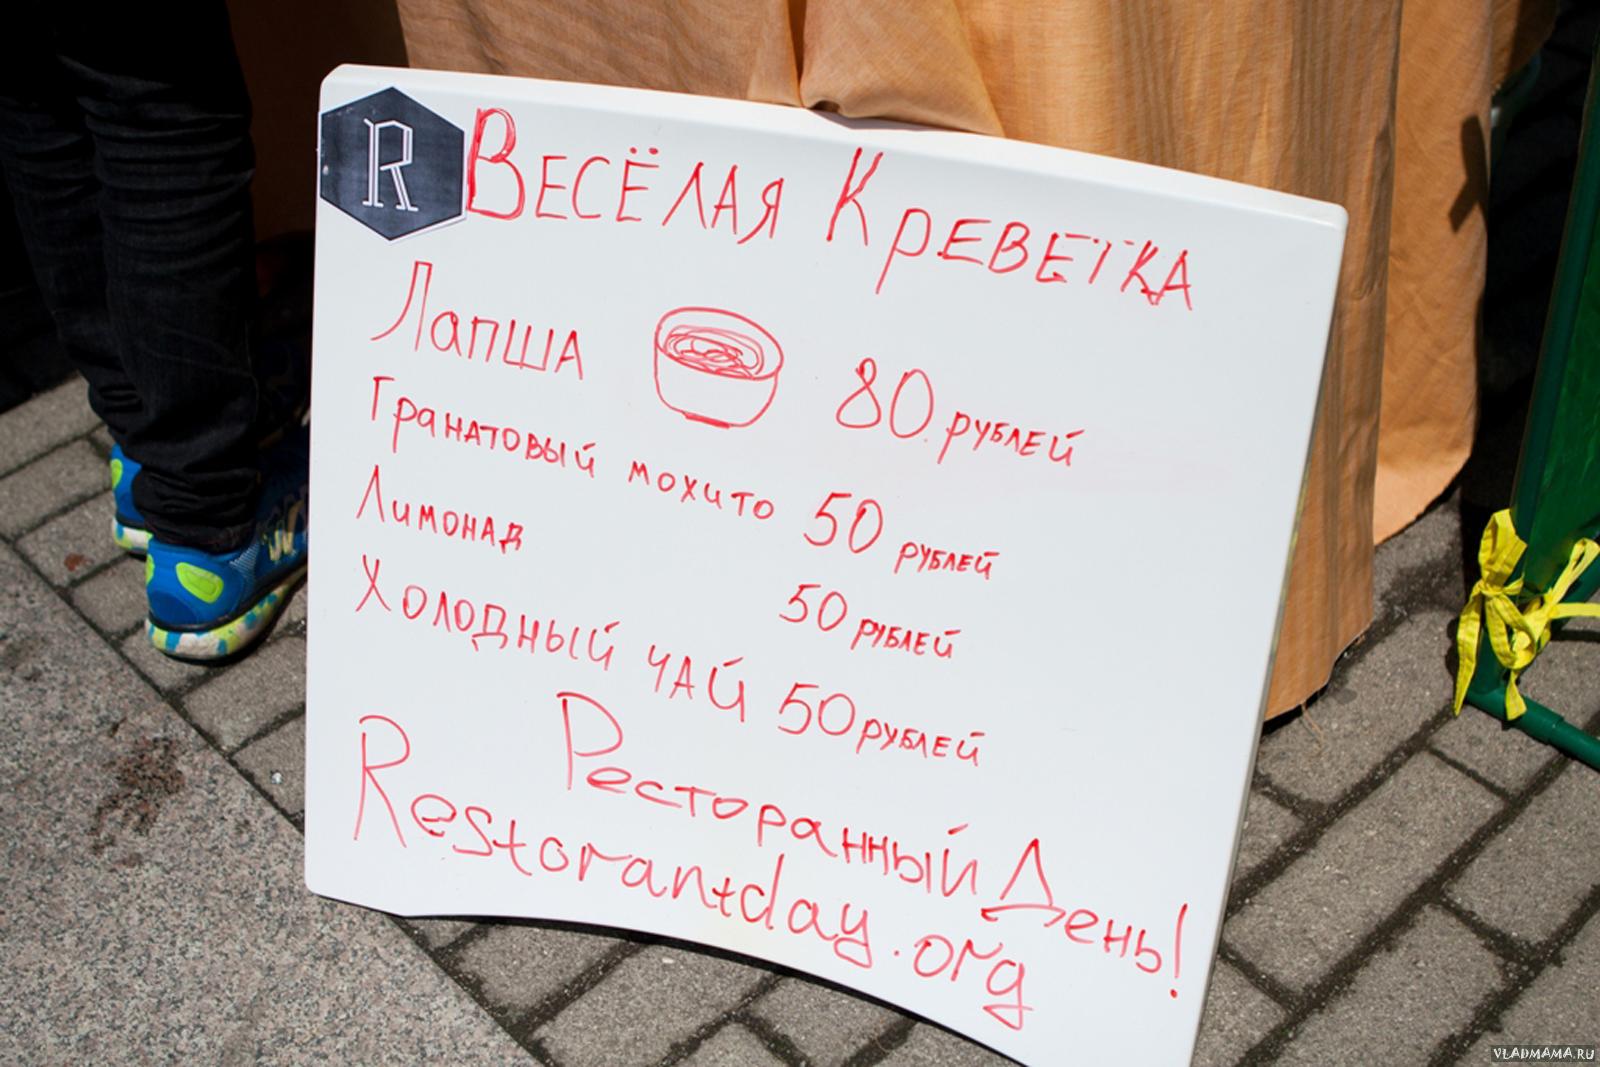 R
ВЕСЁЛАЯ КРЕВЕТКА
Лапша 80 рублей
Гранатовый мохито 50 рублей
Лимонад 50 рублей
Холодный чай 50 рублей
Ресторанный День!
Restorantday.org
VLADMAMA.RU